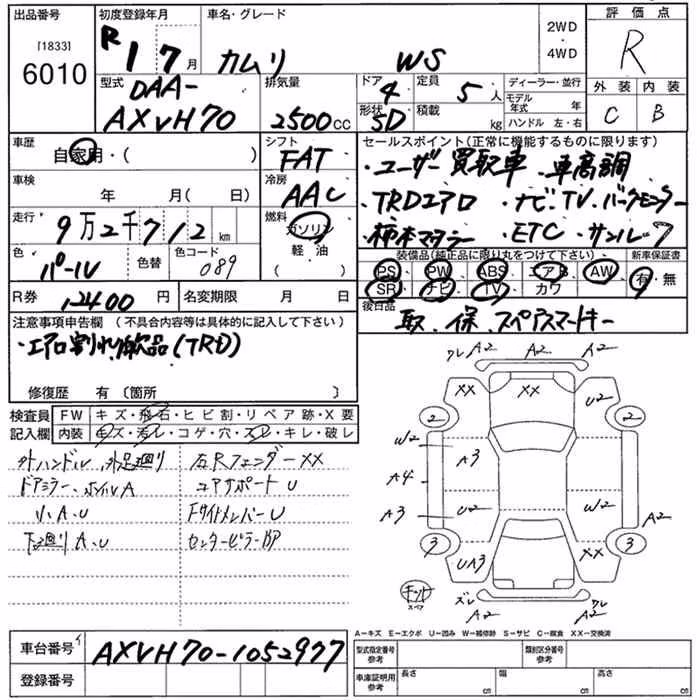 出品番号 初度登録年月 車名・グレード 2WD 評価点
[1833] R1 7月 カムリ WS ・ R
6010 4WD
型式 排気量 ドア 定員 ディーラー・並行 外装 内装
DAA- 4 5人 モデル年式 年
AXVH70 2500cc 形状 5D 積載 kg ハンドル 左・右 C B
車歴 シフト セールスポイント(正常に機能するものに限ります)
自家用・( ) FAT ・ユーザー買取車 、車高調
車検 冷房 ・TRDエアロ ・ナビ、TV、バックモニター
年 月( 日) AAC ・柿本マフラー ・ETC ・サンルーフ
走行 燃料
9万2千712km ガソリン
色 色替 色コード ・ 装備品(純正品に限り丸をつけて下さい) 新車保証書
パール 089 軽・油 PS PW ABS エアB AW 有・無
R券 12400円 名変期限 月 日 SR ナビ TV カワ
後日品
注意事項申告欄 (不具合内容等は具体的に記入して下さい) 取、保、スペアスマートキー
・エアロ割れ欠品(TRD)
修復歴 有 〔箇所 〕
検査員 FW キズ・飛石・ヒビ割・リペア跡・X要
記入欄 内装 キズ・汚レ・コゲ・穴・スレ・キレ・破レ
外ハンドル、外足廻り 右Rフェンダー XX
ドアミラー、ホイルA コアサポートU
小A、U FサイドメンバーU
下廻りA、U センターピラー
ワレ A2 A2 A2
XX XX U2
2 2
W2 A3
A4
A3 U2 W2 A2
3 UA3 XX 3
キット
スペア
ズレ A2 ワレ A2
A−キズ E−エクボ U−凹み W−補修跡 S−サビ C−腐食 XX−交換済
車台番号 AXVH70-1052977 型式指定番号 参考 類別区分番号 参考
登録番号 車庫証明用 参考 長さ cm 幅 cm 高さ cm